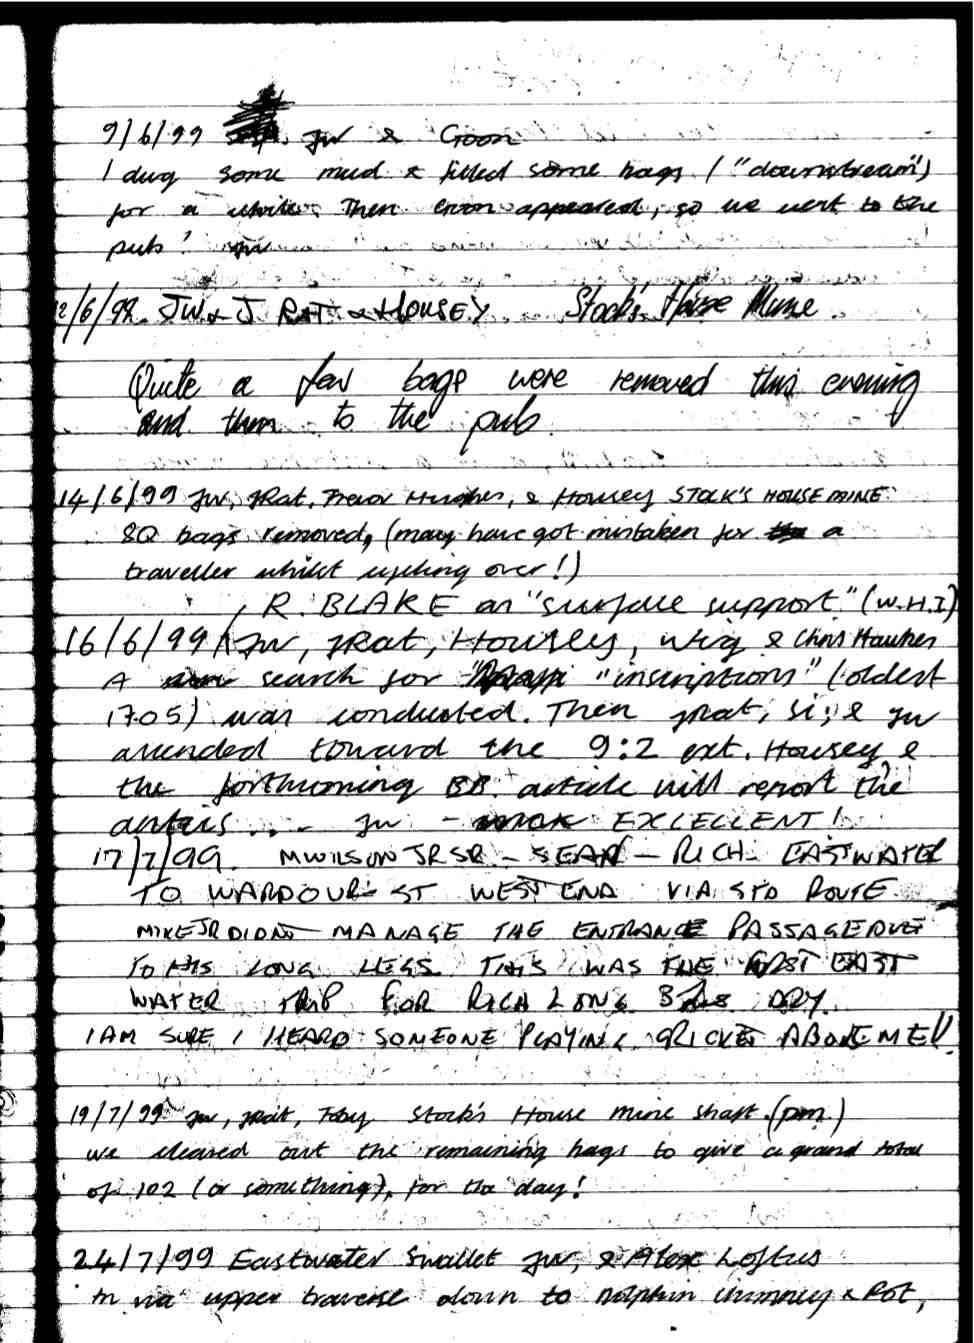 9/6/99 JW & Goon
I dug some mud & filled some bags ("downstream")
for a while. Then Goon appeared, so we went to the
pub! JW
2/6/99 JW & J RAT & HOUSEY Stock's House Mine
Quite a few bags were removed this evening
and then to the pub
14/6/99 JW, JRat, Trevor Hughes, & Housey STOCK'S HOUSE MINE
80 bags removed, (may have got mistaken for a
traveller whilst cycling over!)
, R. BLAKE as "surface support" (W.H.I)
16/6/99 JW, JRat, Housey, Wig & Chris Hawkes
A search for "inscriptions" (oldest
1705) was conducted. Then JRat, & JW
ascended toward the 9:2 ext. Housey &
the forthcoming BB article will report the
... JW - EXCELLENT!
17/7/99 M WILSON JR SR - SEAN - RICH EASTWATER
TO WARDOUR ST WEST END VIA STD ROUTE
MIKE JR DIDNT MANAGE THE ENTRANCE PASSAGE DUE
TO HIS LONG LEGS THIS WAS THE FIRST EAST
WATER TRIP FOR RICH LONG DRY
I AM SURE I HEARD SOMEONE PLAYING CRICKET ABOVE ME!!
19/7/99 JW, JRat, Toby Stock's House Mine Shaft (pm)
we cleared out the remaining bags to give a grand total
of 102 (or something), for the day!
24/7/99 Eastwater Swallet JW, & Alex Loftus
In via upper traverse down to Dolphin chimney & Pot,